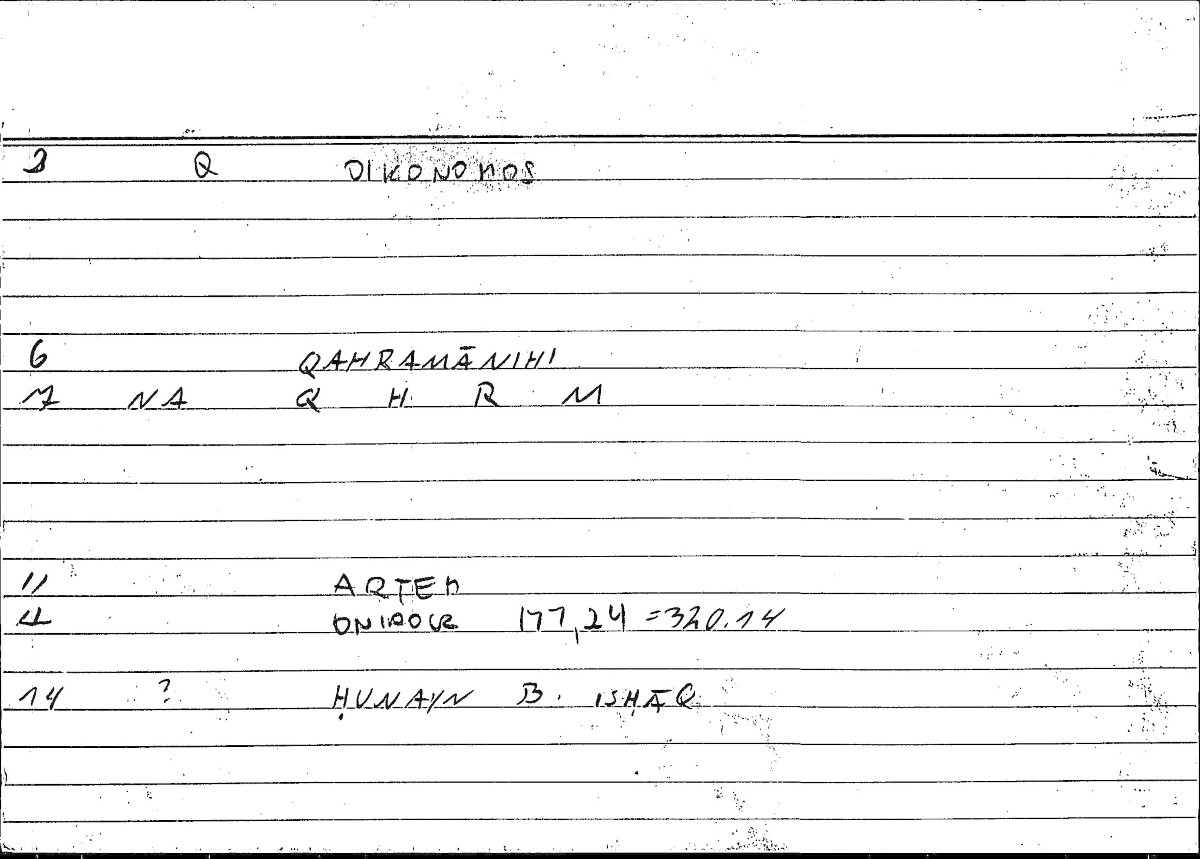 2 Q OIKONOMOS
6 QAHRAMĀNIHI
7 NA Q H R M
11 ARTEM
4 ONIROCR 177,24 =320.14
14 ? ḤUNAYN B. ISḤĀQ